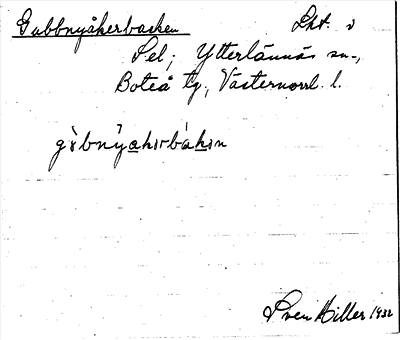 Gubbnyåkerbacken Lht. i
Sel; Ytterlännäs sn.,
Boteå tg., Västernorrl. l.
Sven Hiller 1932